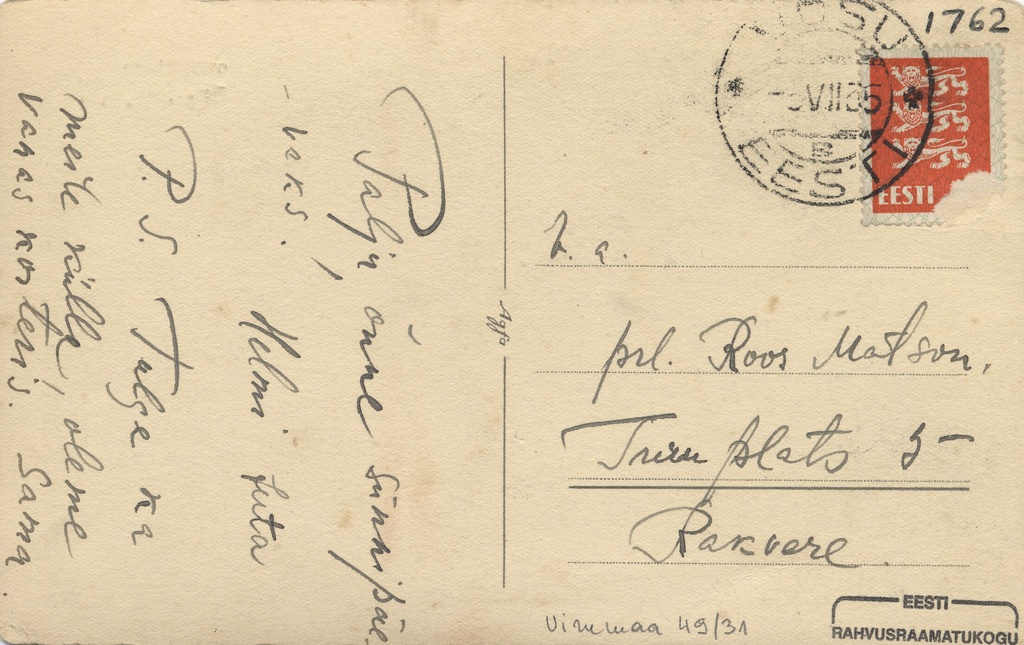 Palju õnne sünnipäe
-vaks.
Helmi Juta
P.S. Tulge ka
meile külla, oleme
vanas korteris. Sama
Agfa
1762
VÕSU
VII 35
B
EESTI
EESTI
L. a.
prl. Roos Matson,
Turu plats 5
Rakvere
Virumaa 49/31
EESTI
RAHVUSRAAMATUKOGU